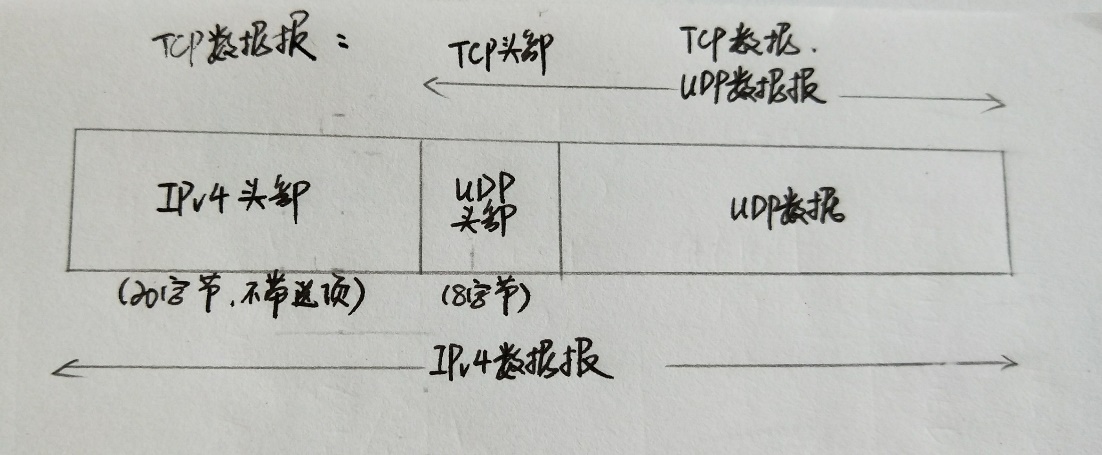 TCP数据报: TCP头部 TCP数据.
UDP数据报
IPv4头部 UDP头部 UDP数据
(20字节,不带选项) (8字节)
IPv4数据报